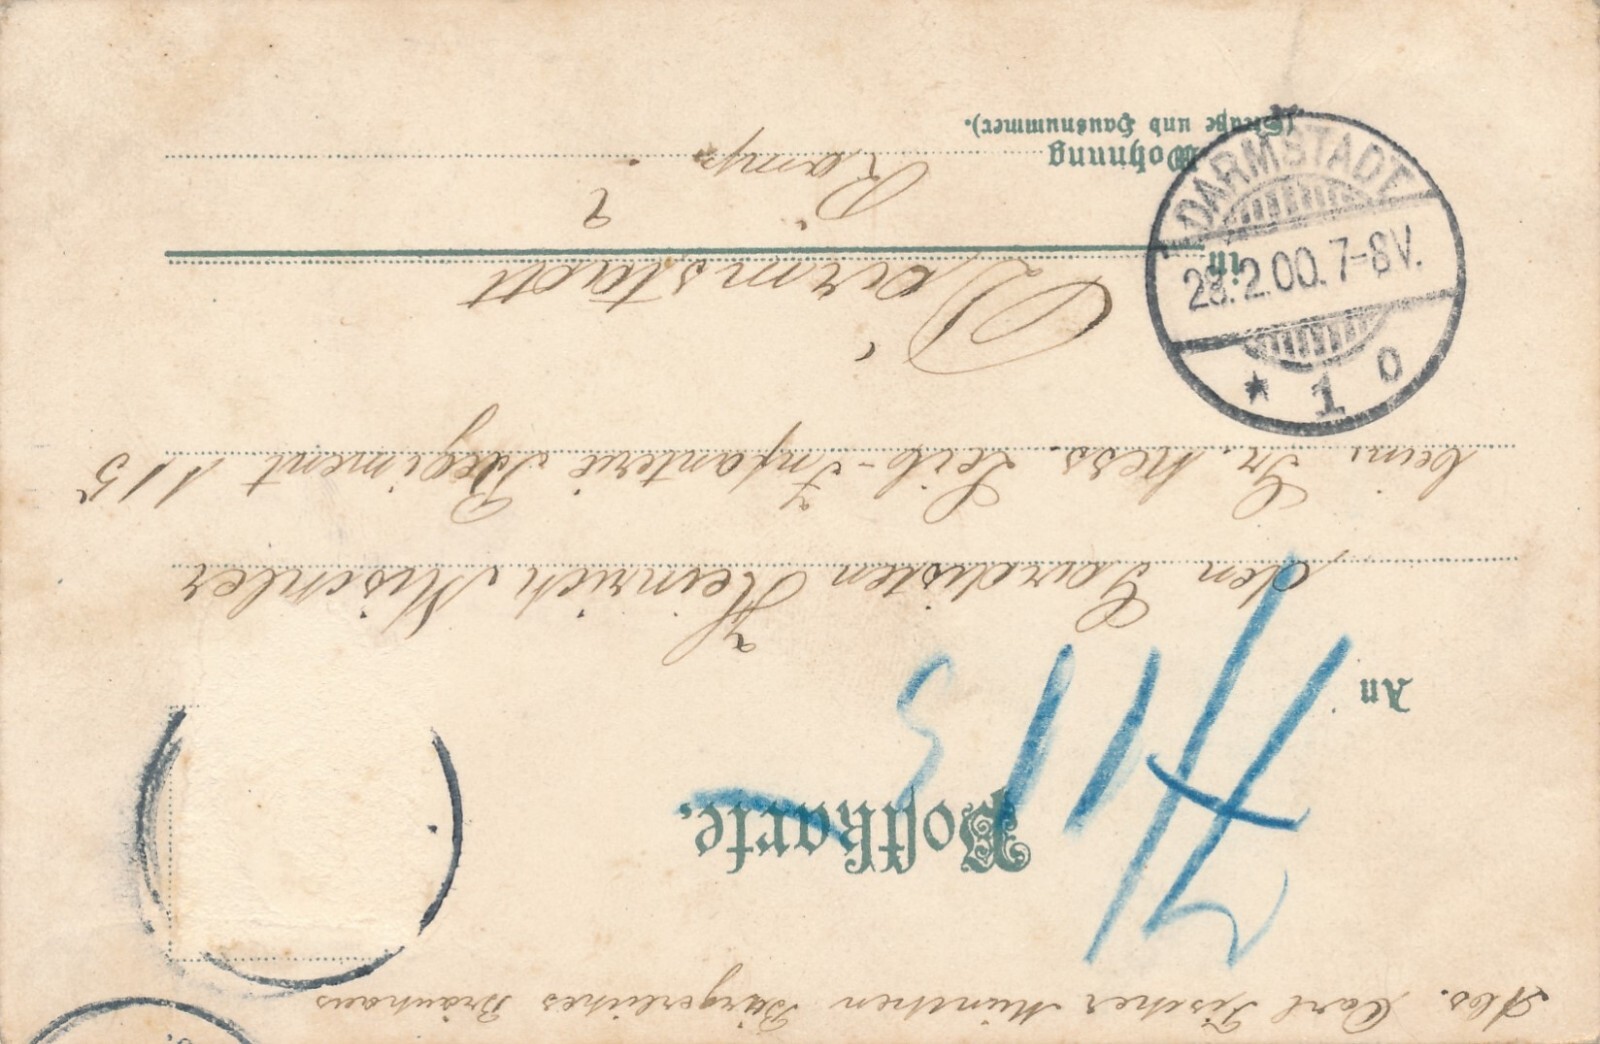 Abs. Carl Fischer München Bürgerliches Bräuhaus
Postkarte.
An
den Gardisten Heinrich Mischler
beim Gr. Hess. Leib-Infanterie Regiment 115
in Darmstadt
Wohnung
(Straße und Hausnummer).
DARMSTADT
28.2.00.7-8V.
* 1 o
115